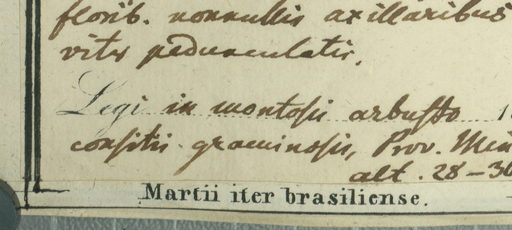 florib. nonnullis axillaribus
vite pedunculatis.
Legi in montosis arbusto
consitis graminosis, Prov. Min
alt. 28-30
Martii iter brasiliense.